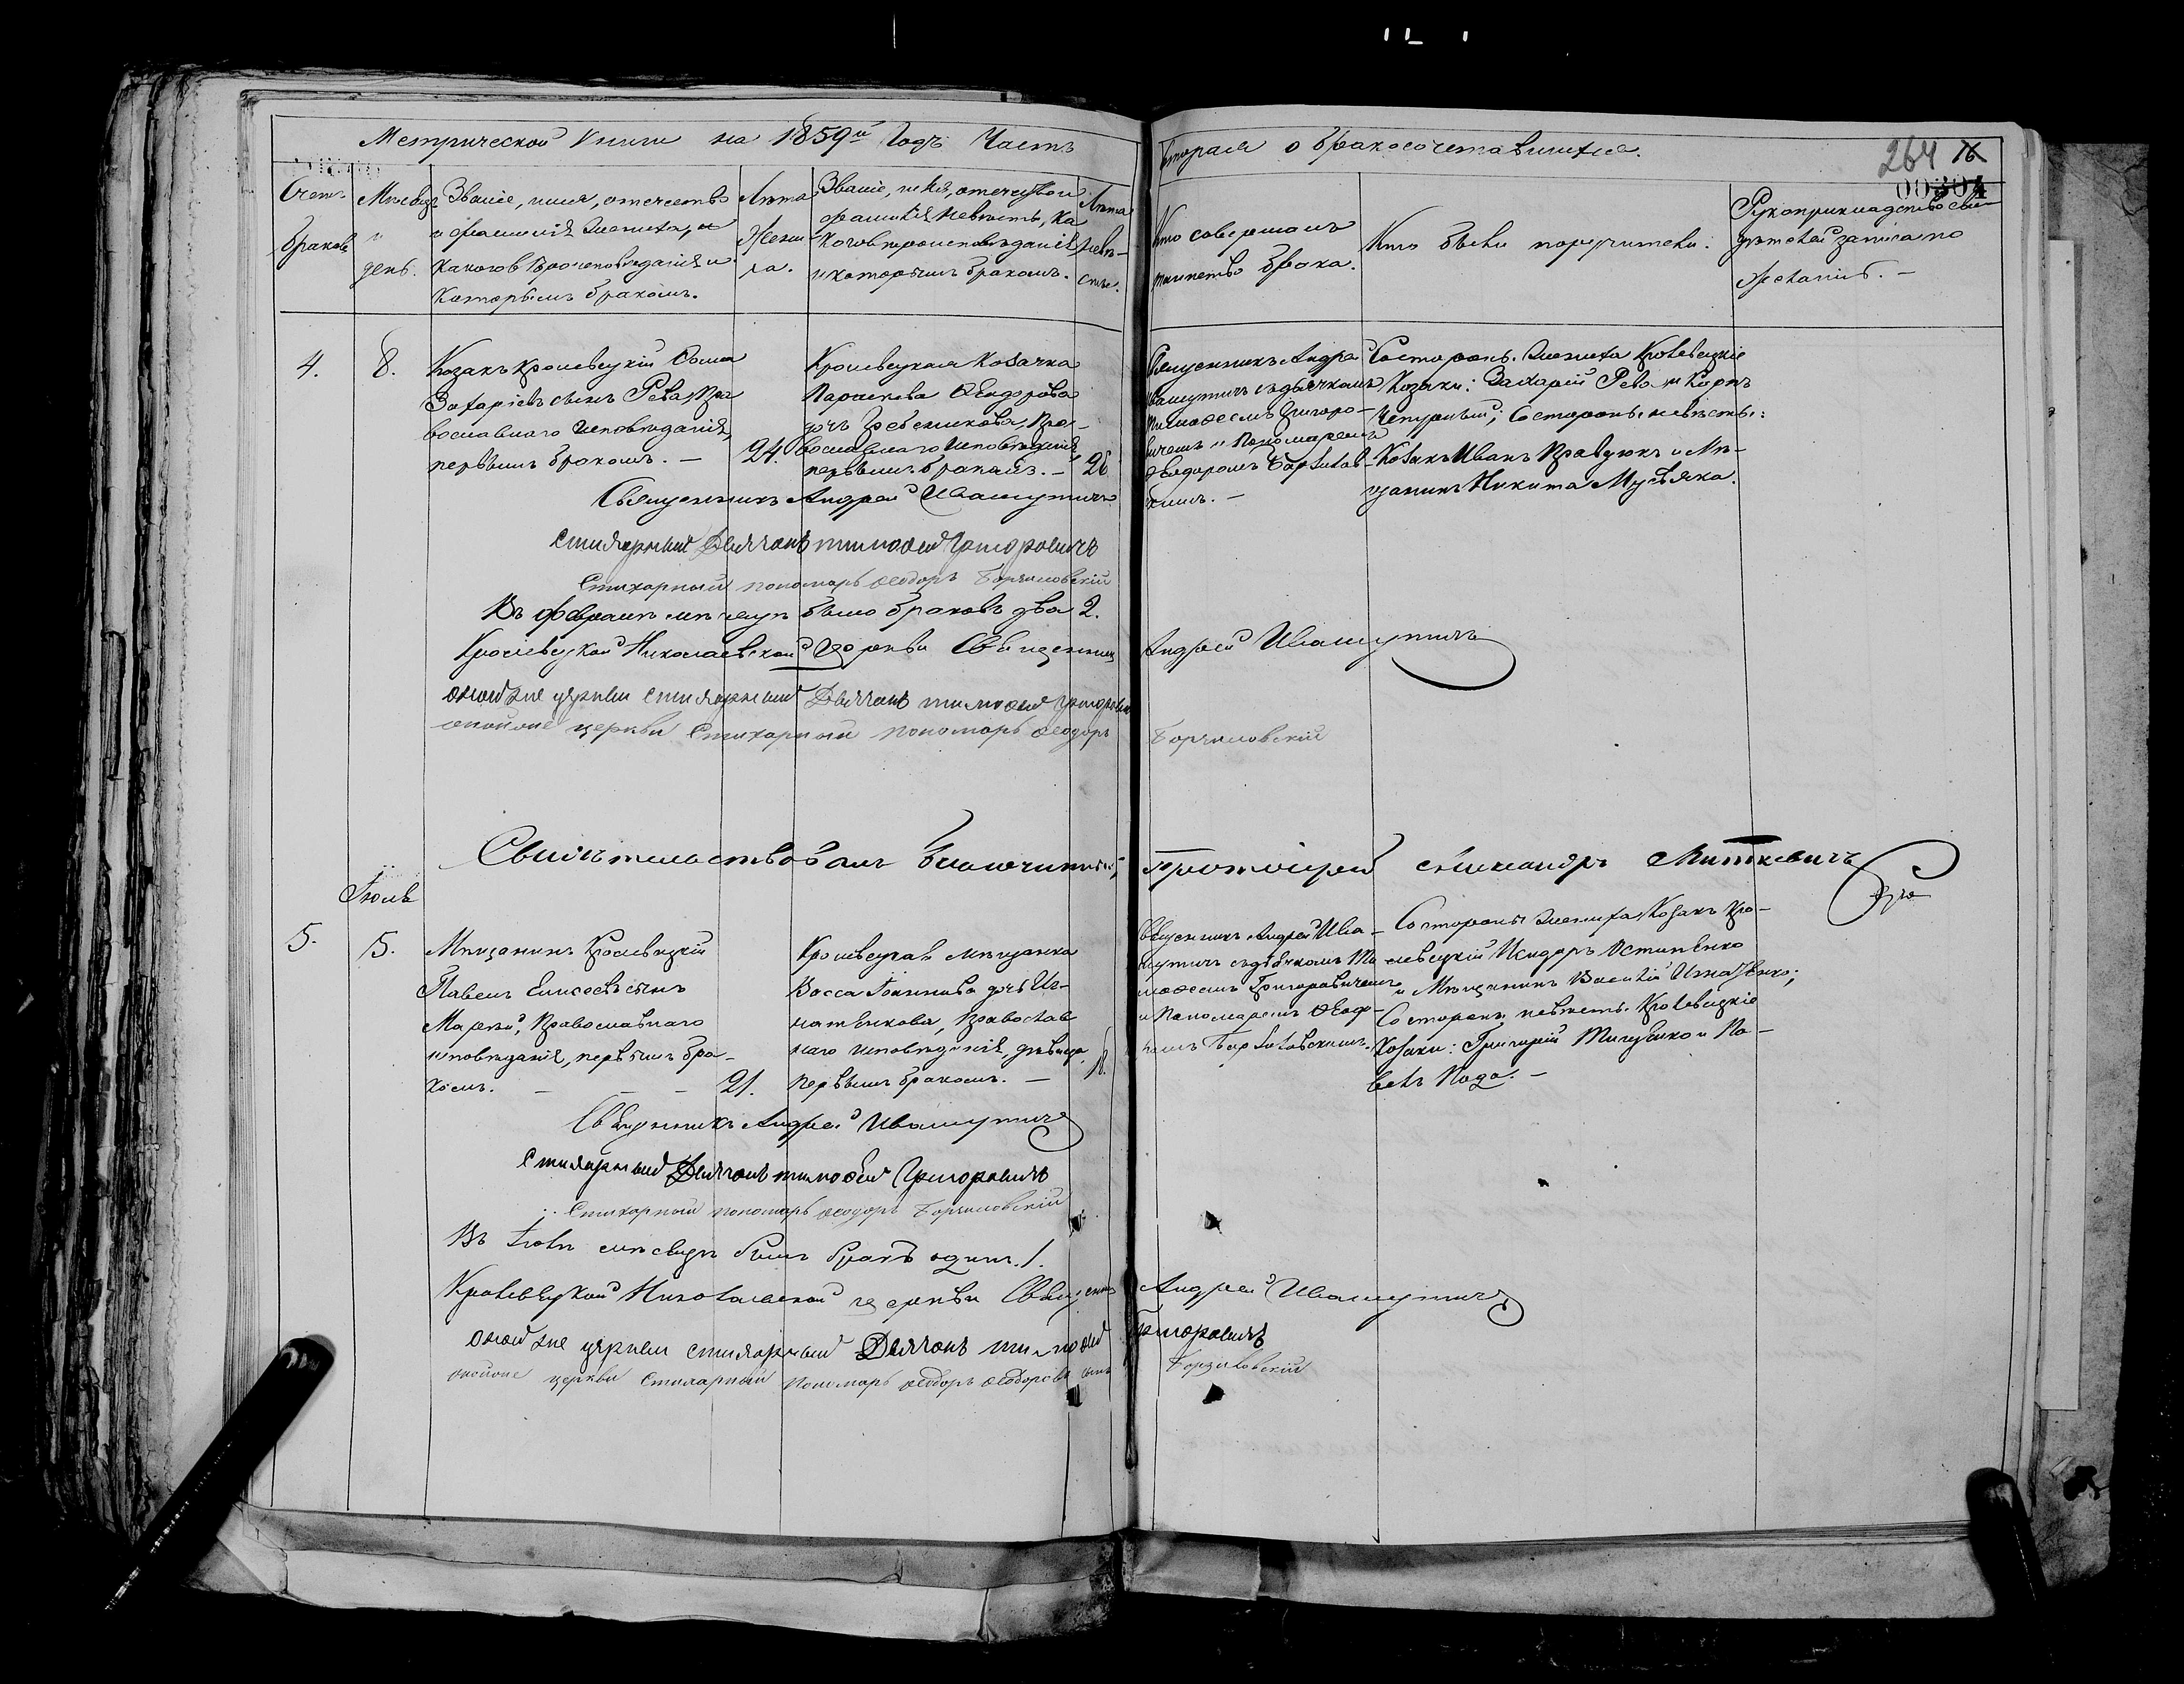 Метрической Книги на 1859й Годъ Часть
вторая о бракосочетавшихся.
264 16
00304
Счет браковъ
Мѣсяцъ и день.
Званіе, имя, отечество
и фамилія жениха, и
какого вѣроисповѣданія и
которымъ бракомъ.
Лѣта жениха.
Званіе, имя, отечество и
фамилія невѣсты, ка
кого вѣроисповѣданія
и которымъ бракомъ.
Лѣта невѣсты.
Кто совершалъ
таинство брака.
Кто были поручители.
Рукоприкладство сви
дѣтелей записа по
желанію. —
4.
8.
Козакъ Кролевецкій Фома
Захаріевъ сынъ Рева, Пра
вославного исповѣданія,
первымъ бракомъ. — 24.
Кролевецкая Козачка
Параскева Ѳеодорова
дочь Гребенникова, Пра-
вославнаго исповѣданія
первымъ бракомъ. — 26
Священникъ Андрей
Ивашутичъ съ дьячкомъ
Тимоѳеемъ Григоро-
вичемъ и Пономаремъ
Ѳеодоромъ Борзаков-
скимъ. —
Со стороны жениха Кролевецкіе
Козаки: Захарій Рева и Карпъ
со стороны невѣсты:
Козакъ Иванъ Правдюкъ и Мѣ-
щанинъ Никита Мусѣяка.
Священникъ Андрей Ивашутичъ
Стихарный Дьячокъ Тимоѳей Григоровичъ
Стихарный пономарь Ѳеодоръ Борзаковскій
Въ Февралѣ мѣсяцѣ было браковъ два 2.
Кролевецкой Николаевской церкви Священникъ Андрей Ивашутичъ
оной же церкви стихарный Дьячокъ Тимоѳей Григоровичъ
оной же церкви Стихарный пономарь Ѳеодоръ Борзаковскій
Свидѣтельствовалъ благочинный, Протоіерей Александръ Миткевичъ
Іюль
5.
15.
Мѣщанинъ Кролевецкій
Павелъ Елисеевъ сынъ
Малый, Православнаго
исповѣданія, первымъ бра-
комъ. — — — 21.
Кролевецкая мѣщанка
Васса Іоаннова дочь Иг-
натенкова, Православ
наго исповѣданія, дѣвица,
первымъ бракомъ. — 18.
Священникъ Андрей Ива-
шутичъ съ дьячкомъ Ти
моѳеемъ Григоровичемъ
и Пономаремъ Ѳеодо-
ромъ Борзаковскимъ.
Со стороны жениха Козакъ Кро-
левецкій Исидоръ Остапенко
и Мѣщанинъ Василій Игнатенко;
Со стороны невѣсты Кролевецкіе
Козаки: Григорій Тищенко и Па-
велъ Кода. —
Священникъ Андрей Ивашутичъ
Стихарный Дьячокъ Тимоѳей Григоровичъ
Стихарный пономарь Ѳеодоръ Борзаковскій
Въ Іюлѣ мѣсяцѣ былъ бракъ одинъ. 1.
Кролевецкой Николаевской церкви Священникъ Андрей Ивашутичъ
оной же церкви стихарный Дьячокъ Тимоѳей Григоровичъ
оной же церкви Стихарный пономарь Ѳеодоръ Ѳеодоровъ сынъ Борзаковскій